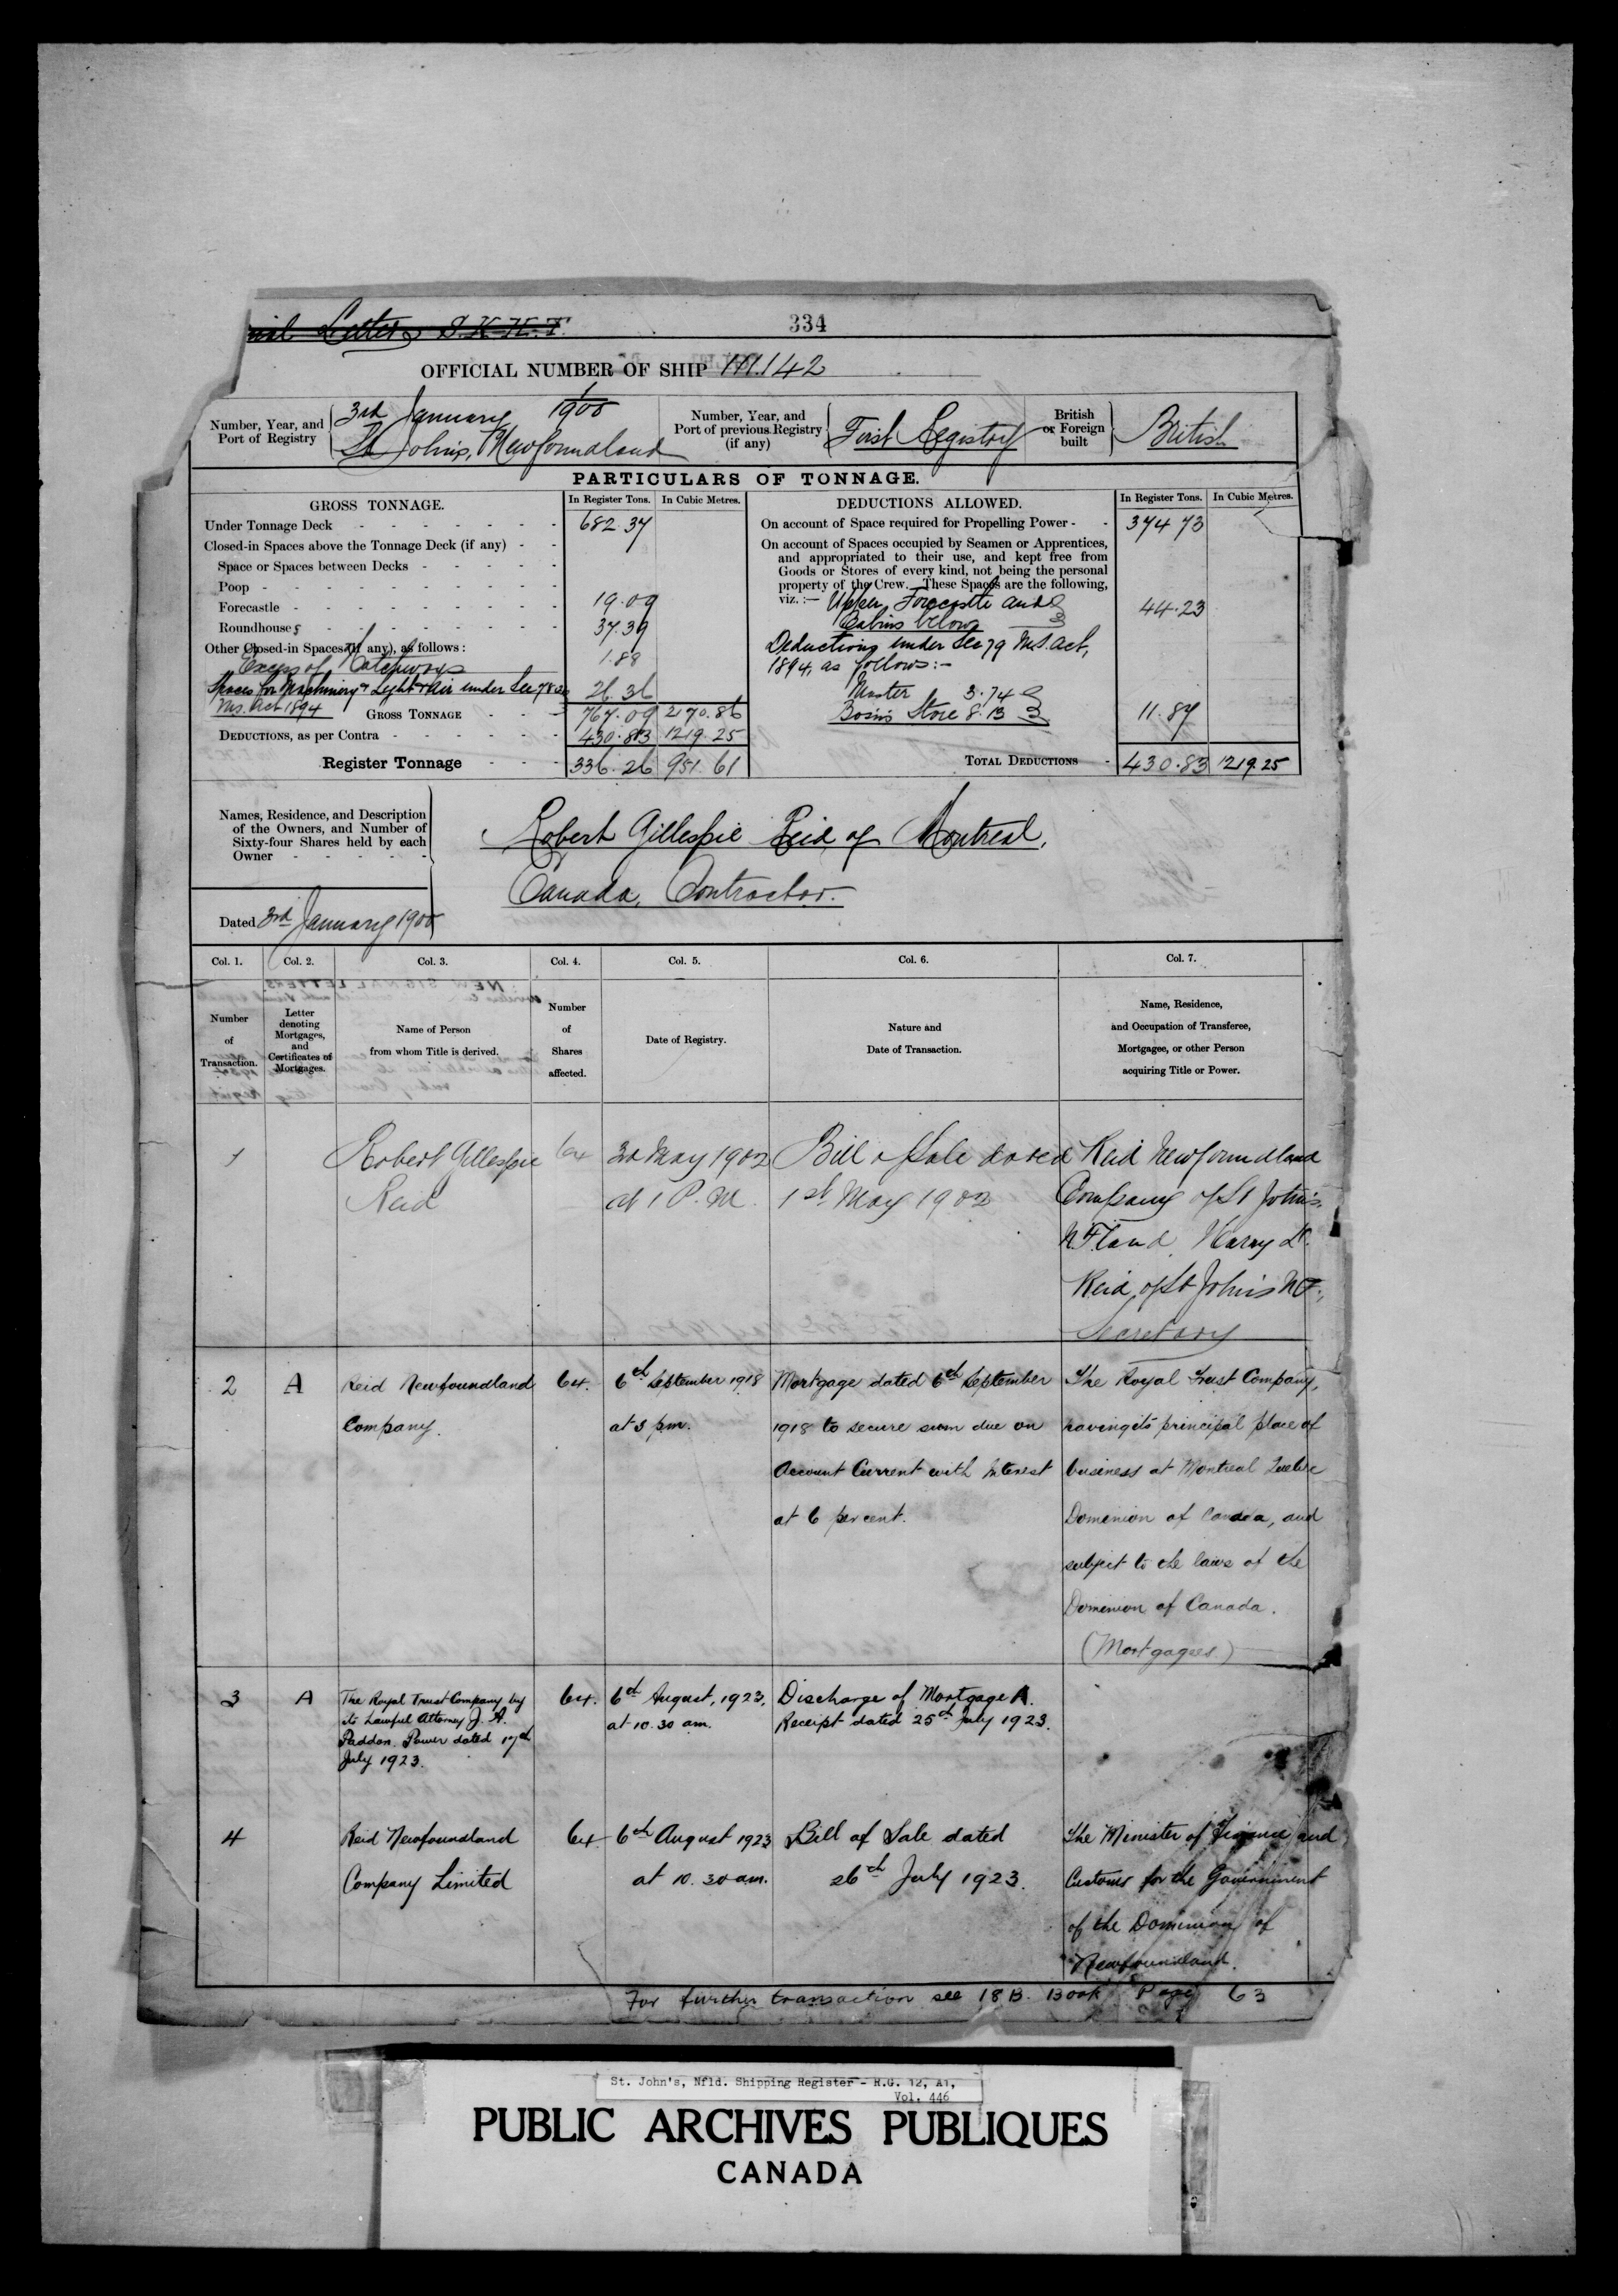 Letters S.K.H.T.
334
OFFICIAL NUMBER OF SHIP 111.142
Number, Year, and
Port of Registry
1
3rd January 1900
St John's, Newfoundland
Number, Year, and
Port of previous Registry
(if any)
First Registry
British
or Foreign
built
British
PARTICULARS OF TONNAGE.
GROSS TONNAGE. In Register Tons. In Cubic Metres.
Under Tonnage Deck 682.37
Closed-in Spaces above the Tonnage Deck (if any)
Space or Spaces between Decks
Poop
Forecastle 19.09
Roundhouses 37.39
Other Closed-in Spaces (if any), as follows:
Excess of Hatchways 1.88
Spaces for Machinery & Light & Air under Sec 78
M.S. Act 1894 26.36
GROSS TONNAGE 767.09 2170.86
DEDUCTIONS, as per Contra 430.83 1219.25
Register Tonnage 336.26 951.61
DEDUCTIONS ALLOWED. In Register Tons. In Cubic Metres.
On account of Space required for Propelling Power 374.73
On account of Spaces occupied by Seamen or Apprentices,
and appropriated to their use, and kept free from
Goods or Stores of every kind, not being the personal
property of the Crew. These Spaces are the following,
viz.:— Upper Forecastle and
Cabins below 44.23
Deductions under Sec 79 M.S. Act,
1894, as follows:-
Master 3.74
Bosins Store 8.13 11.87
TOTAL DEDUCTIONS 430.83 1219.25
Names, Residence, and Description
of the Owners, and Number of
Sixty-four Shares held by each
Owner
Robert Gillespie Reid of Montreal,
Canada, Contractor.
Dated 3rd January 1900
Col. 1. Col. 2. Col. 3. Col. 4. Col. 5. Col. 6. Col. 7.
Number
of
Transaction.
Letter
denoting
Mortgages,
and
Certificates of
Mortgages.
Name of Person
from whom Title is derived.
Number
of
Shares
affected.
Date of Registry.
Nature and
Date of Transaction.
Name, Residence,
and Occupation of Transferee,
Mortgagee, or other Person
acquiring Title or Power.
1
Robert Gillespie
Reid
64
May 1902
at 1 P.M.
Bill of Sale dated
1st May 1902
Reid Newfoundland
Company of St John's
N.F.land, Harry D.
Reid, of St John's NF.,
Secretary
2
A
Reid Newfoundland
Company.
64.
6th September 1918
at 3 pm.
Mortgage dated 6th September
1918 to secure sum due on
Account Current with Interest
at 6 per cent.
The Royal Trust Company,
having its principal place of
business at Montreal Quebec
Dominion of Canada, and
subject to the laws of the
Dominion of Canada.
(Mortgagees)
3
A
The Royal Trust Company by
its Lawful Attorney J. A.
Paddon. Power dated 17th
July 1923.
64.
6th August, 1923,
at 10.30 am.
Discharge of Mortgage A.
Receipt dated 25th July 1923.
4
Reid Newfoundland
Company Limited
64
6th August 1923
at 10.30 am.
Bill of Sale dated
26th July 1923.
The Minister of Finance and
Customs for the Government
of the Dominion of
Newfoundland.
For further transaction see 18 B. Book Page 63
St. John's, Nfld. Shipping Register - R.G. 12, A1,
Vol. 446
PUBLIC ARCHIVES PUBLIQUES
CANADA